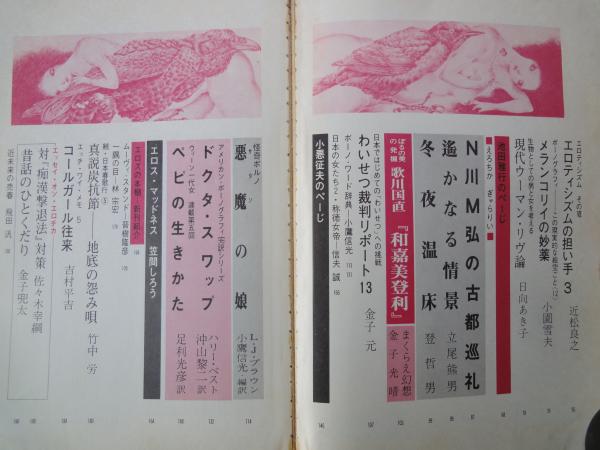 エロティシズム その壱
エロティシズムの担い手 3 近松良之
ポーノグラフィー―この現実的な超空ごと・12
メランコリイの妙薬 小園雪夫
生物としての男と女を考える
現代ウーマン・リヴ論 日向あき子
池田雅行のぺーじ
■えろちか ぎゃらりい■
N川M弘の古都巡礼
遙かなる情景 立尾熊男
冬夜温床 登哲男
ぽるの美の発掘 歌川国直『和嘉美登利』 まくらえ幻想 金子光晴
日本ではじめての、わいせつ、への挑戦
わいせつ裁判リポート13 金子元
ポーノ・ワード辞典・小鷹信光
日本の女たち2・称徳女帝―信夫誠
小悪征夫のぺーじ
146
怪奇ポルノ
悪魔の娘 L・J・ブラウン 小鷹信光 編訳
アメリカン・ポーノグラフィ実訳シリーズ
ドクタ・スワップ ハリー・ベスト 沖山黎二訳
ウィーン一代女 連載第五回
ペピの生きかた 足利光彦訳
114
132
164
エロス・マッドネス 笠間しろう
エロスの本棚・新刊紹介
ムーヴィ・スタンド・菅樹隆彦
一隅の目・林宗宏
続・日本春歌行⑤
真説炭抗節―地底の怨み唄 竹中労
エッチ・ワイ・メモ 5
コールガール往来 吉村平吉
エッセイ・オン・エロチカ
対『痴漢撃退法』対策 佐々木幸綱
昔話のひとくだり 金子兜太
近未来の売春 飛田汎